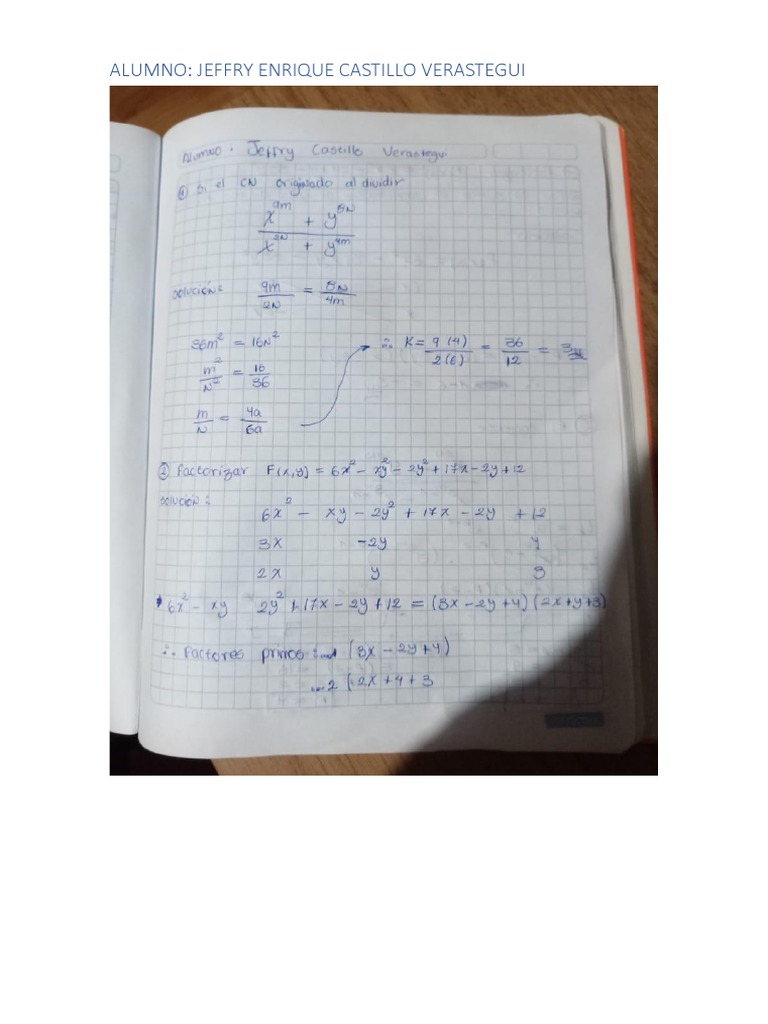 ALUMNO: JEFFRY ENRIQUE CASTILLO VERASTEGUI
Alumno . Jeffry Castillo Verastegui
① Si el CN originado al dividir
x^9m + y^8N / x^2N + y^4m
Solución: 9m/2N = 8N/4m
36m² = 16N²
m²/N² = 16/36
m/N = 4a/6a
∴ K = 9(4)/2(6) = 36/12 = 3
② Factorizar F(x,y) = 6x² - xy² - 2y² + 17x - 2y + 12
Solución:
6x² - xy - 2y² + 17x - 2y + 12
3x -2y 4
2x y 3
6x² - xy 2y² + 17x - 2y + 12 = (3x - 2y + 4)(2x + y + 3)
∴ Factores primos: (3x - 2y + 4)
2 (2x + 4 + 3